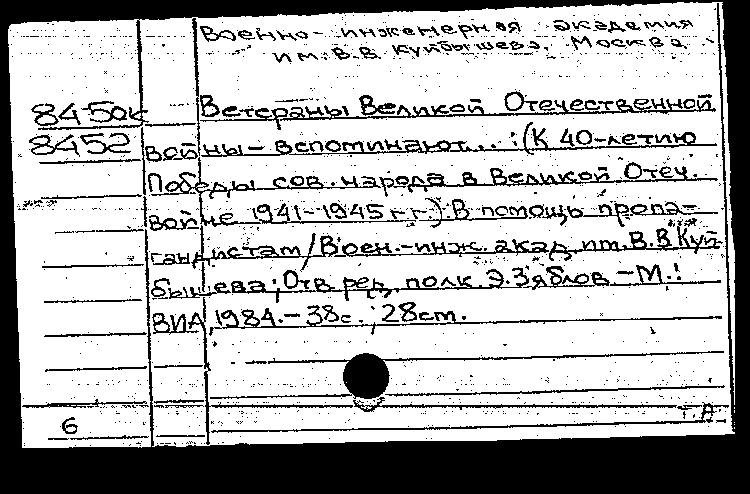 Военно-инженерная академия
им. В.В. Куйбышева. Москва
84-50к
8452
Ветераны Великой Отечественной
войны - вспоминают... : (К 40-летию
Победы сов. народа в Великой Отеч.
войне 1941-1945 г г.): В помощь пропа-
гандистам / Воен.-инж. акад. им. В.В Куй
бышева; Отв ред. полк Э. Зяблов - М.:
ВИА, 1984. - 38с. ; 28cm.
6
т. А